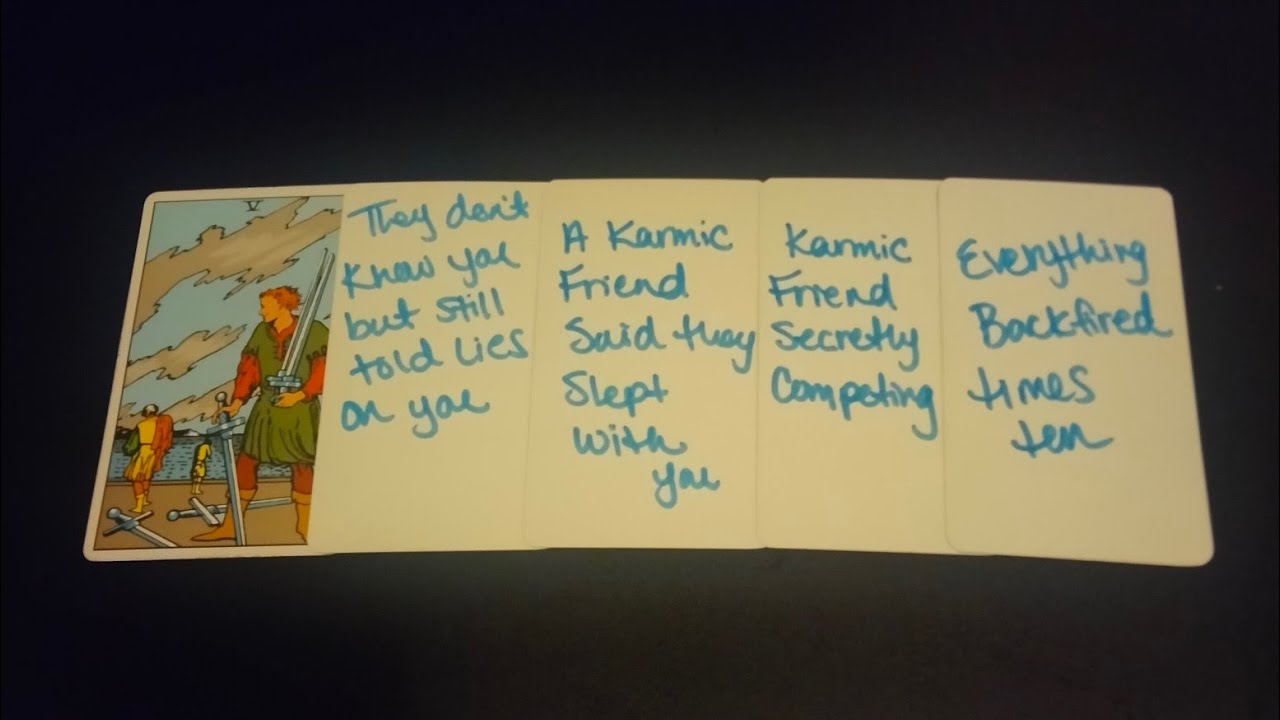 V
They don't
Know you
but still
told lies
on you
A Karmic
Friend
Said they
Slept
with
you
Karmic
Friend
Secretly
Competing
Everything
Backfired
times
ten